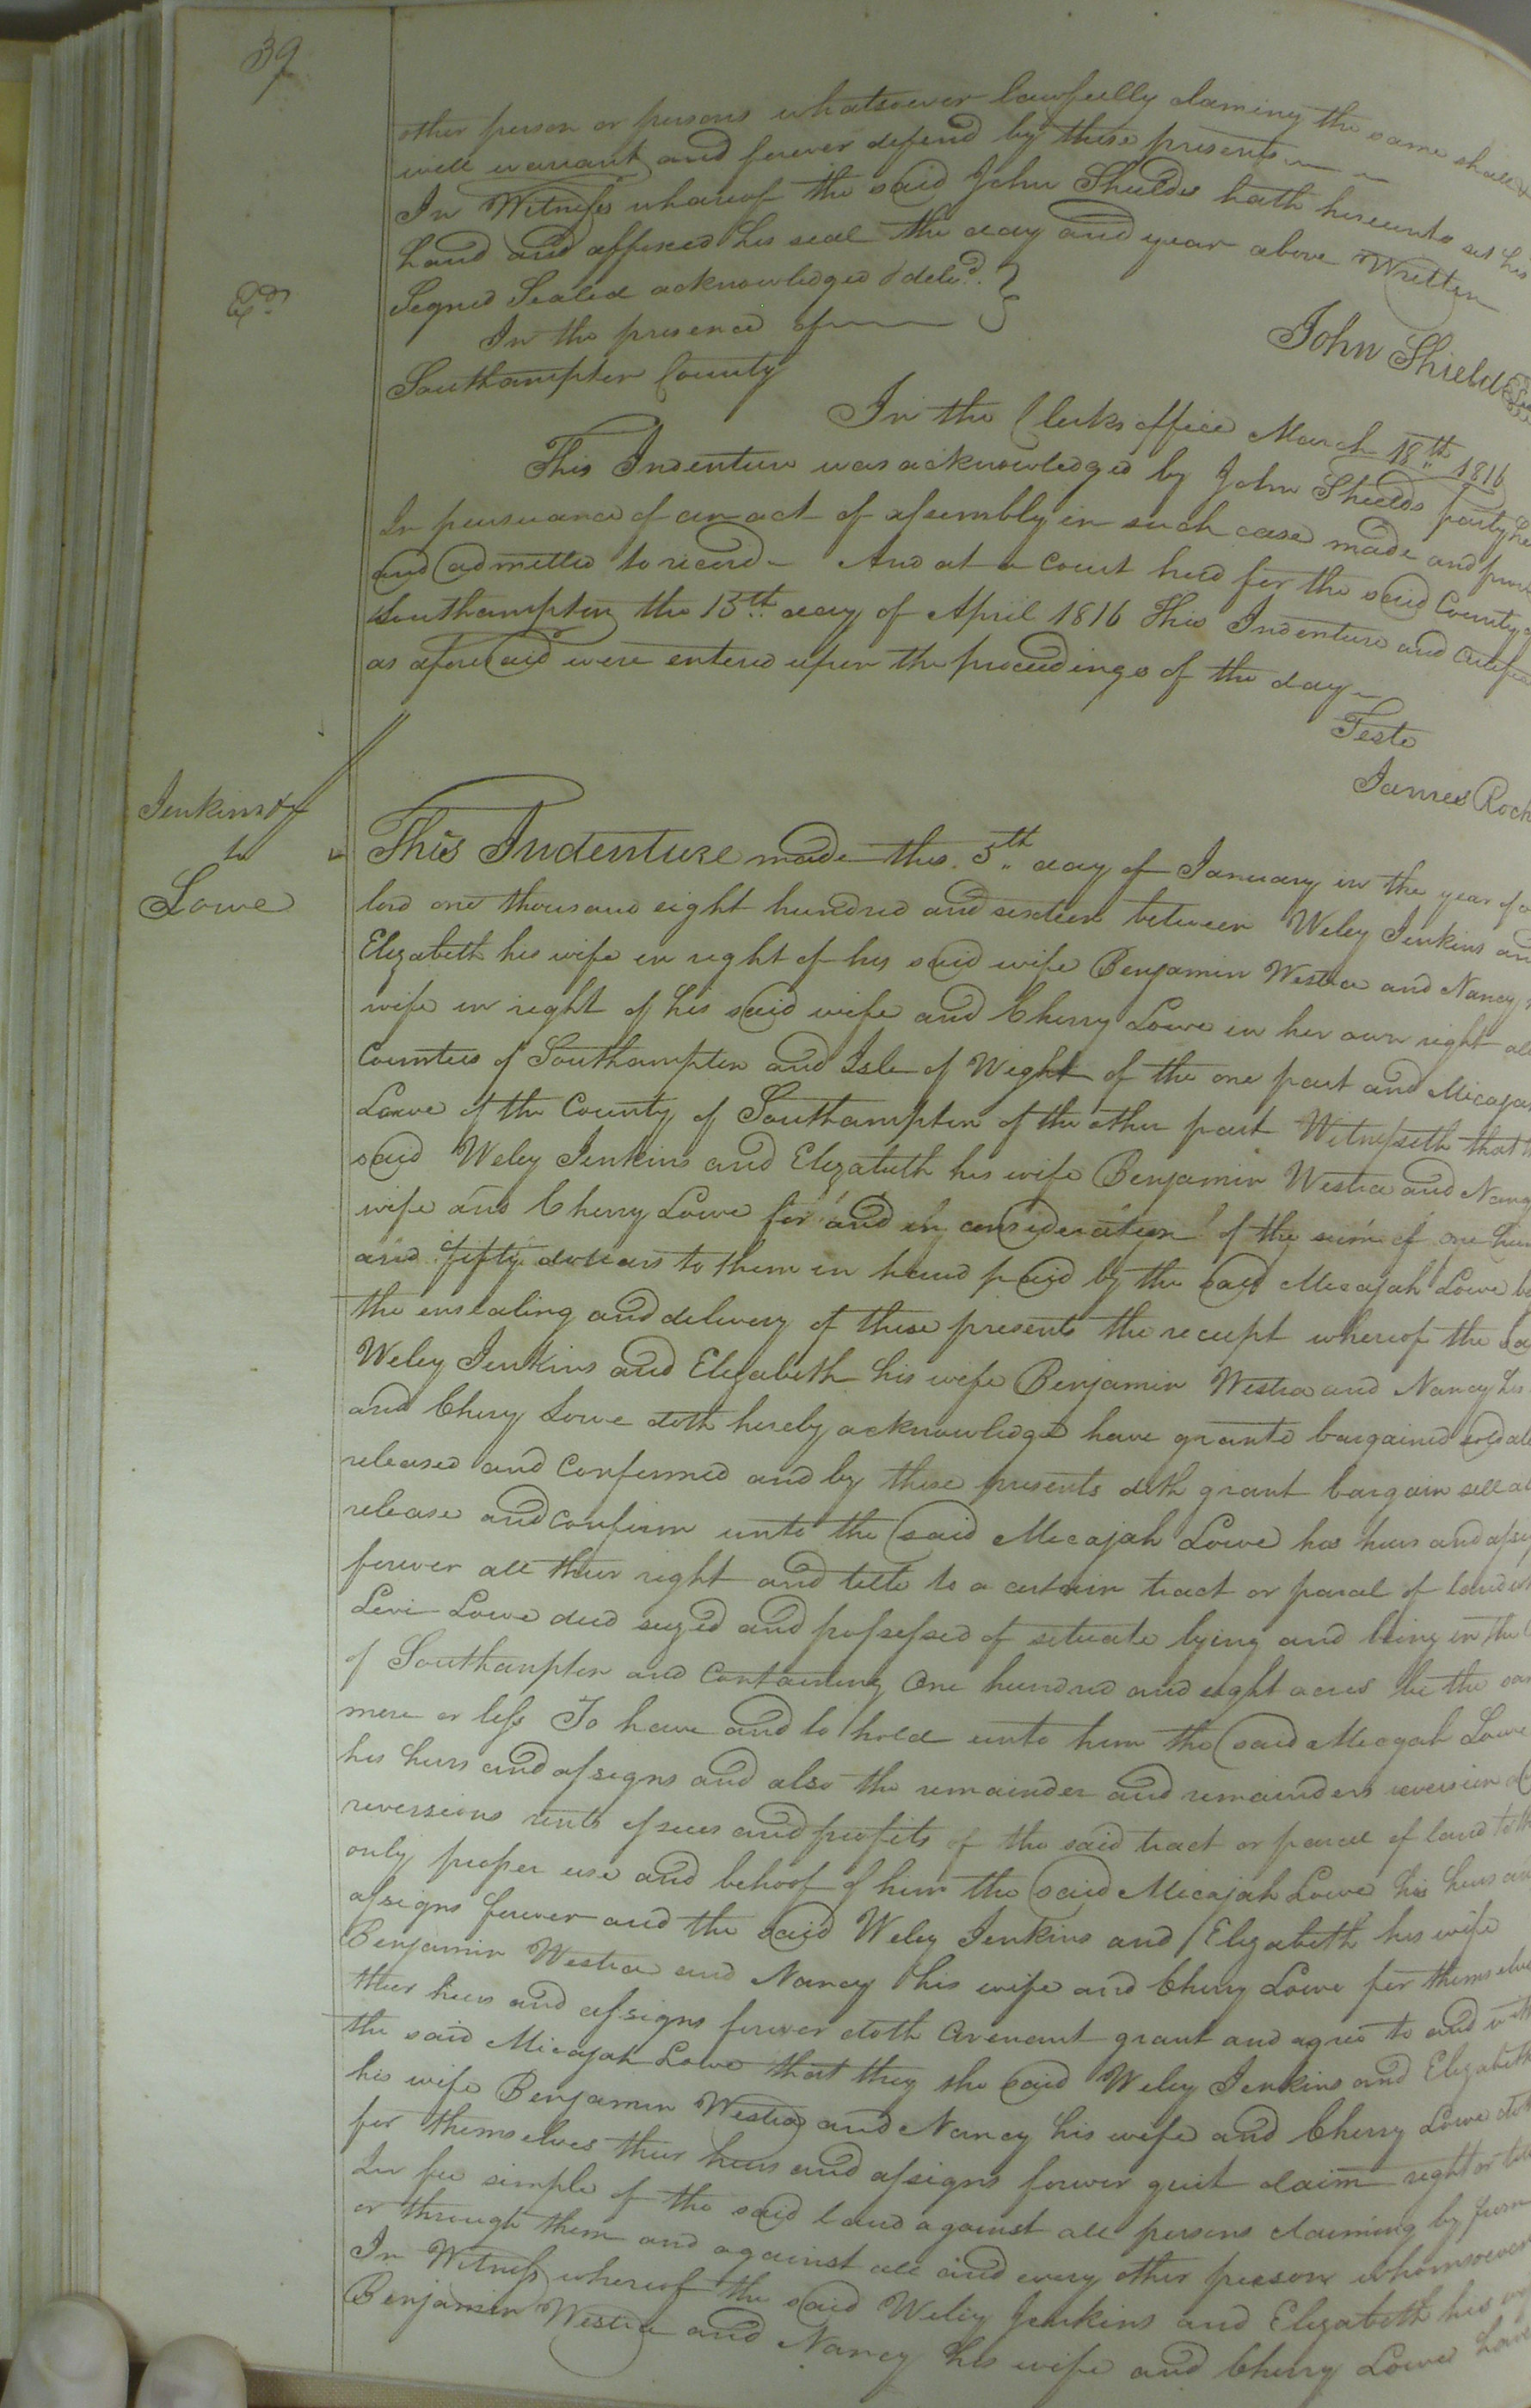 39
other person or persons whatsoever lawfully claming the same shall &
will warrant and forever defend by these presents
In Witness whareof the said John Shields hath hereunto set his
hand and affixed his seal the day and year above Written
Signed Sealed acknowledged & deliv.d
In the presence of
John Shields
Southampton County
In the Clerks office March 18th 1816
This Indenture was acknowledged by John Shields party
In pursuance of an act of assembly in such case made and
and admitted to record And at a Court held for the said County
Southampton the 15th day of April 1816 This Indenture and
as aforesaid were entered upon the proceedings of the day
Teste
James Roch
Jenkins &c
to
Lowe
This Indenture made this 5th day of January in the year of
lord one thousand eight hundred and sixteen between Weley Jenkins and
Elizabeth his wife in right of his said wife Benjamin Westra and Nancy
wife in right of his said wife and Cherry Lowe in her own right all
Counties of Southampton and Isle of Wight of the one part and Micajah
Lowe of the County of Southampton of the other part Witnesseth that
said Weley Jenkins and Elizabeth his wife Benjamin Westra and Nancy
wife and Cherry Lowe for and in consideration of the sum of one
and fifty dollars to them in hand paid by the said Micajah Lowe
the ensealing and delivery of these presents the receipt whereof the
Weley Jenkins and Elizabeth his wife Benjamin Westra and Nancy his
and Cherry Lowe doth hereby acknowledge have grantd bargained sold
released and Confirmed and by these presents doth grant bargain sell
release and Confirm unto the said Micajah Lowe his heirs and
forever all their right and title to a certain tract or parcel of land
Levi Lowe decd seized and possessed of situate lying and being in the
of Southampton and Containing One hundred and eight acres be the
more or less To have and to hold unto him the said Micajah Lowe
his heirs and assigns and also the remainder and remainders reversion
reversions rents issues and profits of the said tract or parcel of land to the
only proper use and behoof of him the said Micajah Lowe his heirs
assigns forever and the said Weley Jenkins and Elizabeth his wife
Benjamin Westra and Nancy his wife and Cherry Lowe for themselves
their heirs and assigns forever doth Covenant grant and agree to and with
the said Micajah Lowe that they the said Weley Jenkins and Elizabeth
his wife Benjamin Westra and Nancy his wife and Cherry Lowe doth
for themselves their heirs and assigns forever quit claim right or
In fee simple of the said land against all persons claiming by from
or through them and against all and every other person whomsoever
In Witness whereof the said Weley Jenkins and Elizabeth his
Benjamin Westra and Nancy his wife and Cherry Lowe have